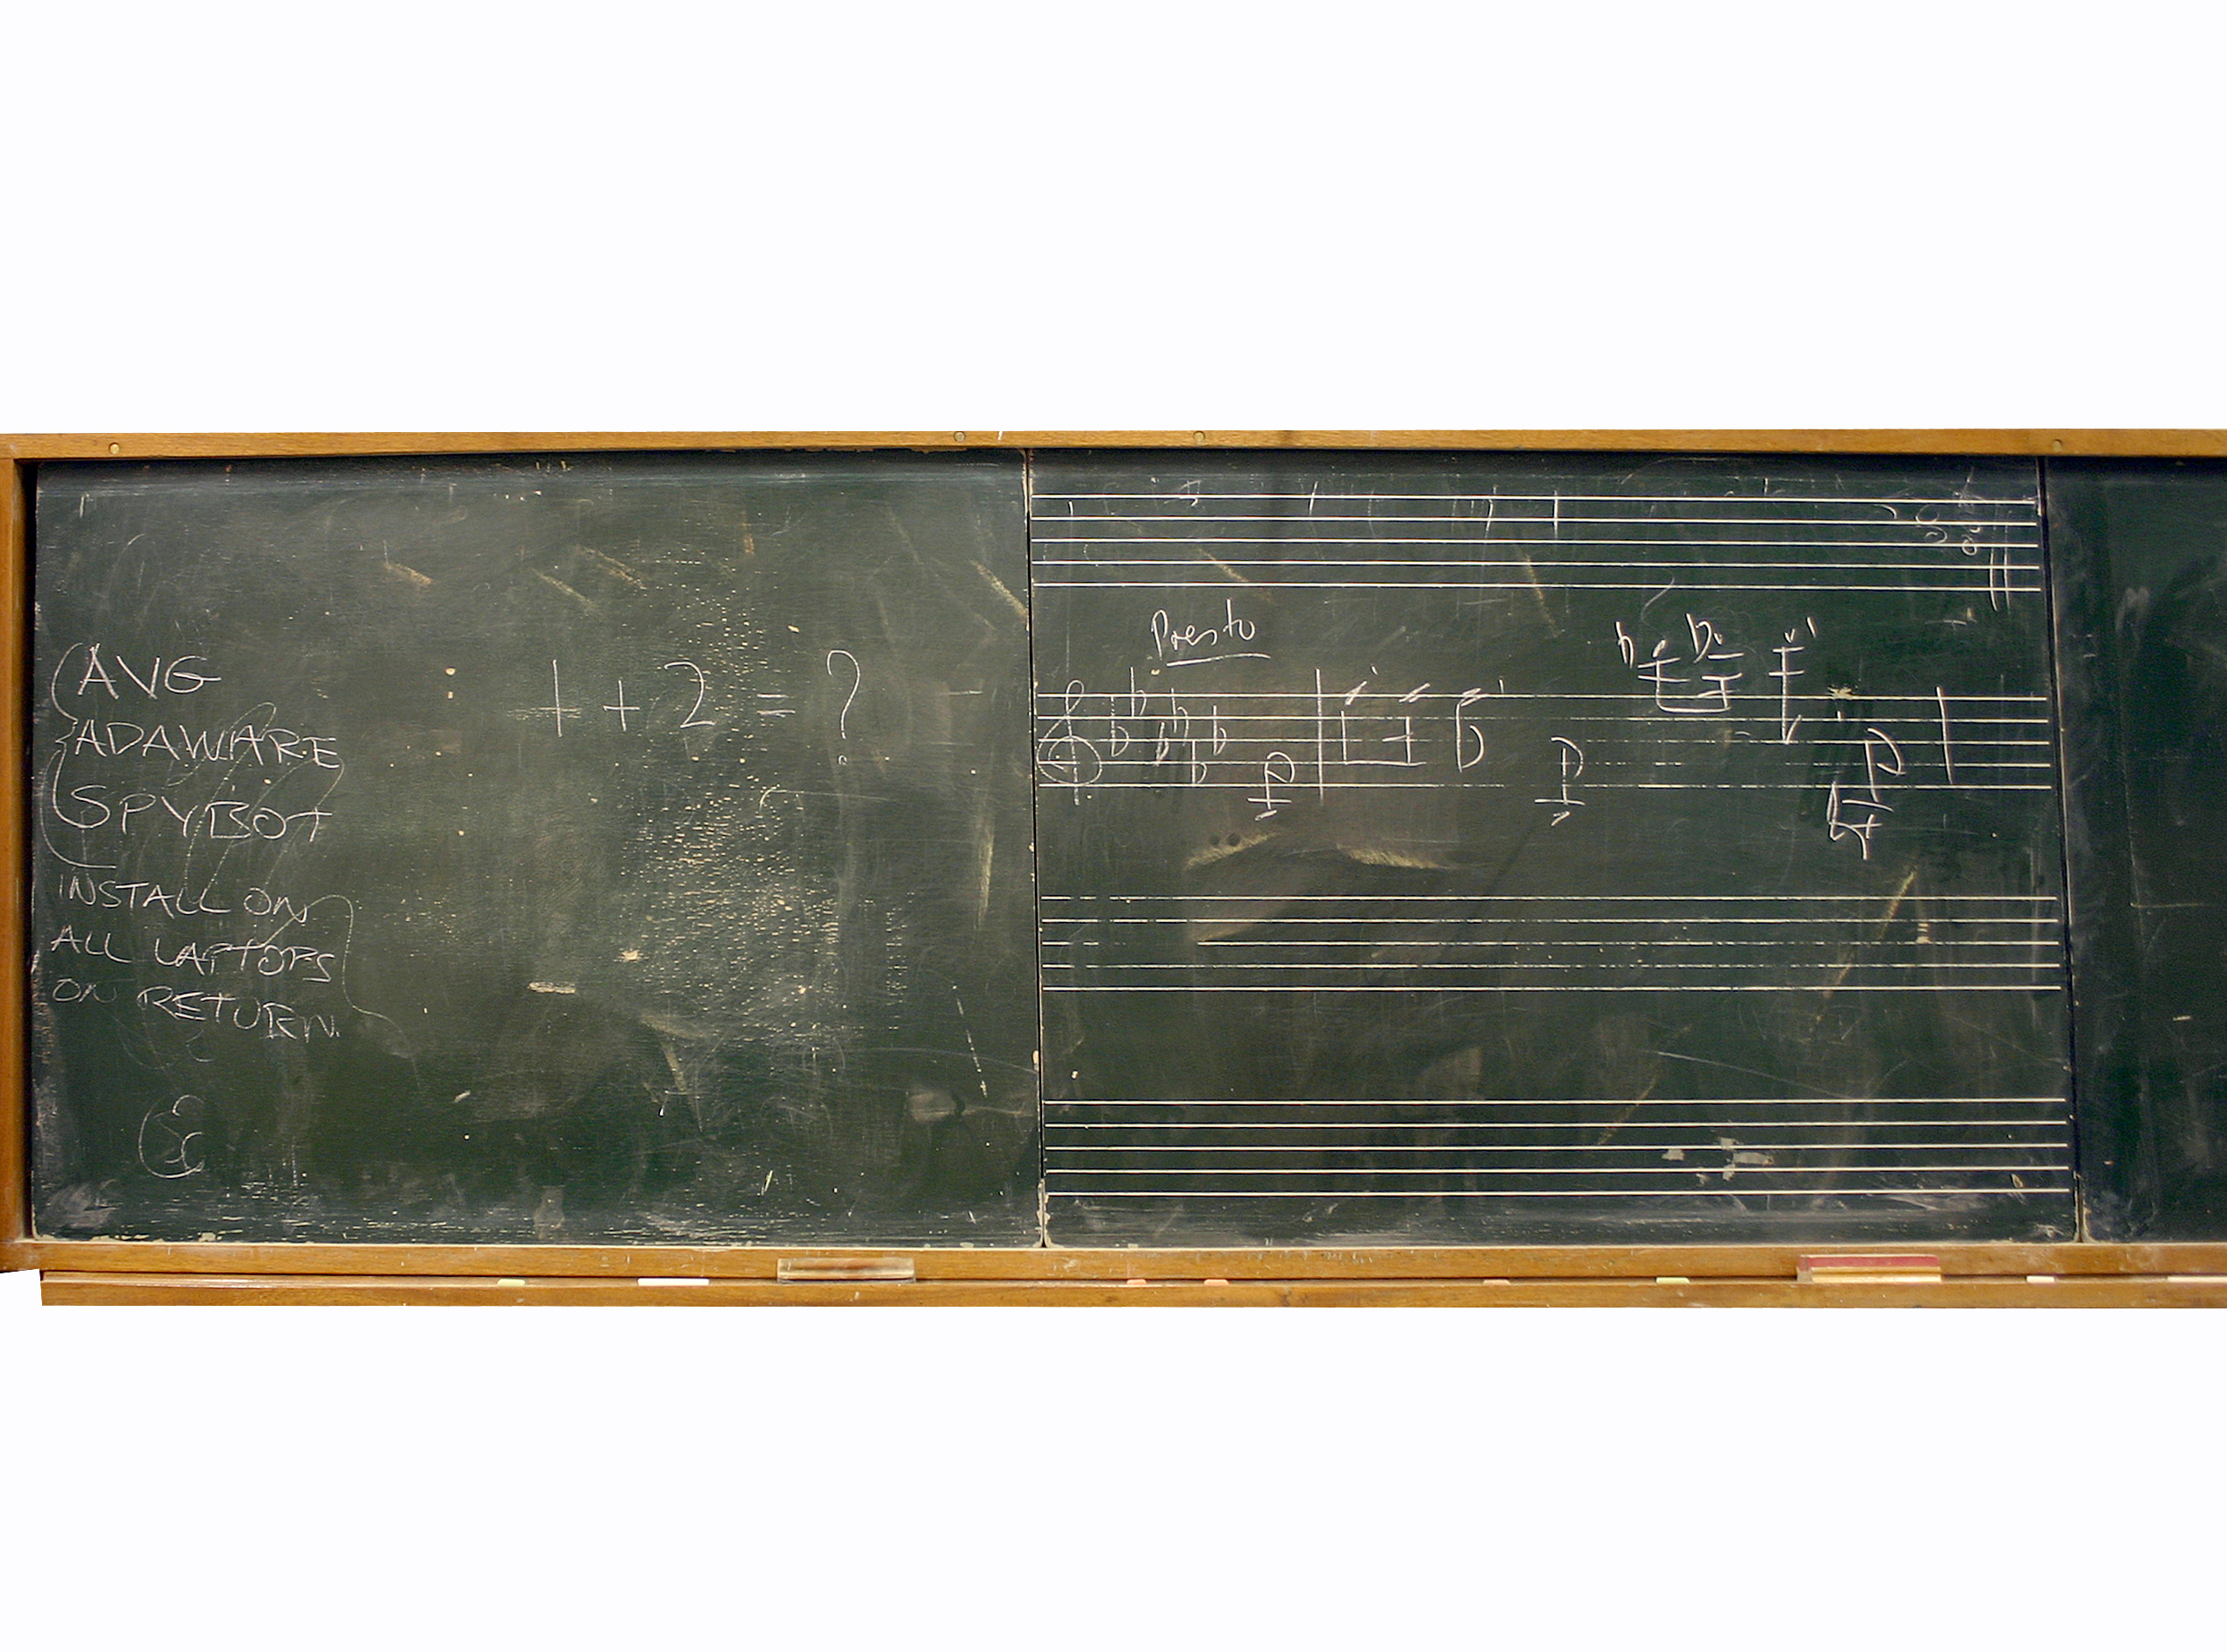 AVG
ADAWARE
SPYBOT
INSTALL ON
ALL LAPTOPS
ON RETURN.
1 + 2 = ?
Presto